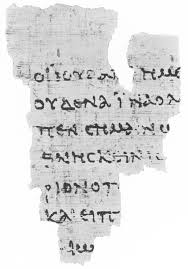 ΟΙΙΟΥΔΑΙ ΗΜΕ
ΟΥΔΕΝΑΙΝΑΟΛ
ΠΕΝϹΗΜΑΙΝΩ
ΘΝΗϹΚΕΙΝΙϹ
ΡΙΟΝΟΠ
ΚΑΙΕΙΠ
ΙΩ